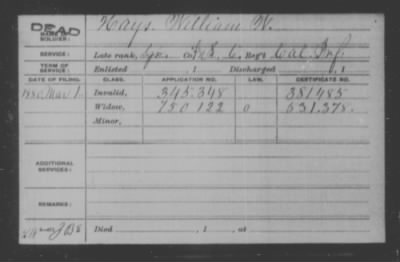 DEAD
NAME OF SOLDIER: Hays, William W.
SERVICE: Late rank, Co. Reg't Cal. Inf.
TERM OF SERVICE: Enlisted , 1 Discharged , 1
DATE OF FILING. CLASS. APPLICATION NO. LAW. CERTIFICATE NO.
1880 Mar 1 Invalid, 345.348 381485
Widow, 780.122 0 531.378.
Minor,
ADDITIONAL SERVICES:
REMARKS:
Died , 1 , at